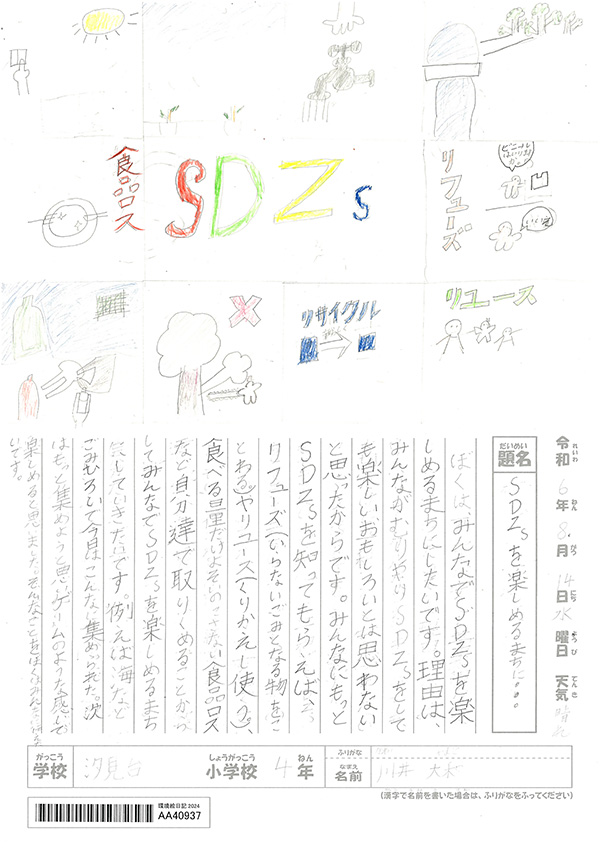 食品ロス
SDZs
リフューズ
ビニールはいりますか。
いいえ
リサイクル
リユース
令和6年8月14日水曜日 天気 晴れ
れいわ ねん がつ にち ようび てんき
だいめい
題名
SDZsを楽しめるまちに。。。
ぼくは、みんなでSDZsを楽
しめるまちにしたいです。理由は、
みんながむりやりSDZsをして
も楽しいおもしろいとは思わない
と思ったからです。みんなにもっと
SDZsを知ってもらえば、
リフューズ(いらないごみとなる物をこ
とわる)やリユース(くりかえし使う)、
食べる量だけよそい
食品ロス
など自分達で取りくめることから
してみんなでSDZsを楽しめるまち
にしていきたいです。例えば海など
ごみひろいで今日はこんなに集められた。次
はもっと集めようと思いゲームのような感じで
楽しめると思いました。そんなことを
いです。
がっこう
学校
汐見台
しょうがっこう
小学校
4
ねん
年
ふりがな
なまえ
名前
川井
(漢字で名前を書いた場合は、ふりがなをふってください)
環境絵日記 2024
AA40937